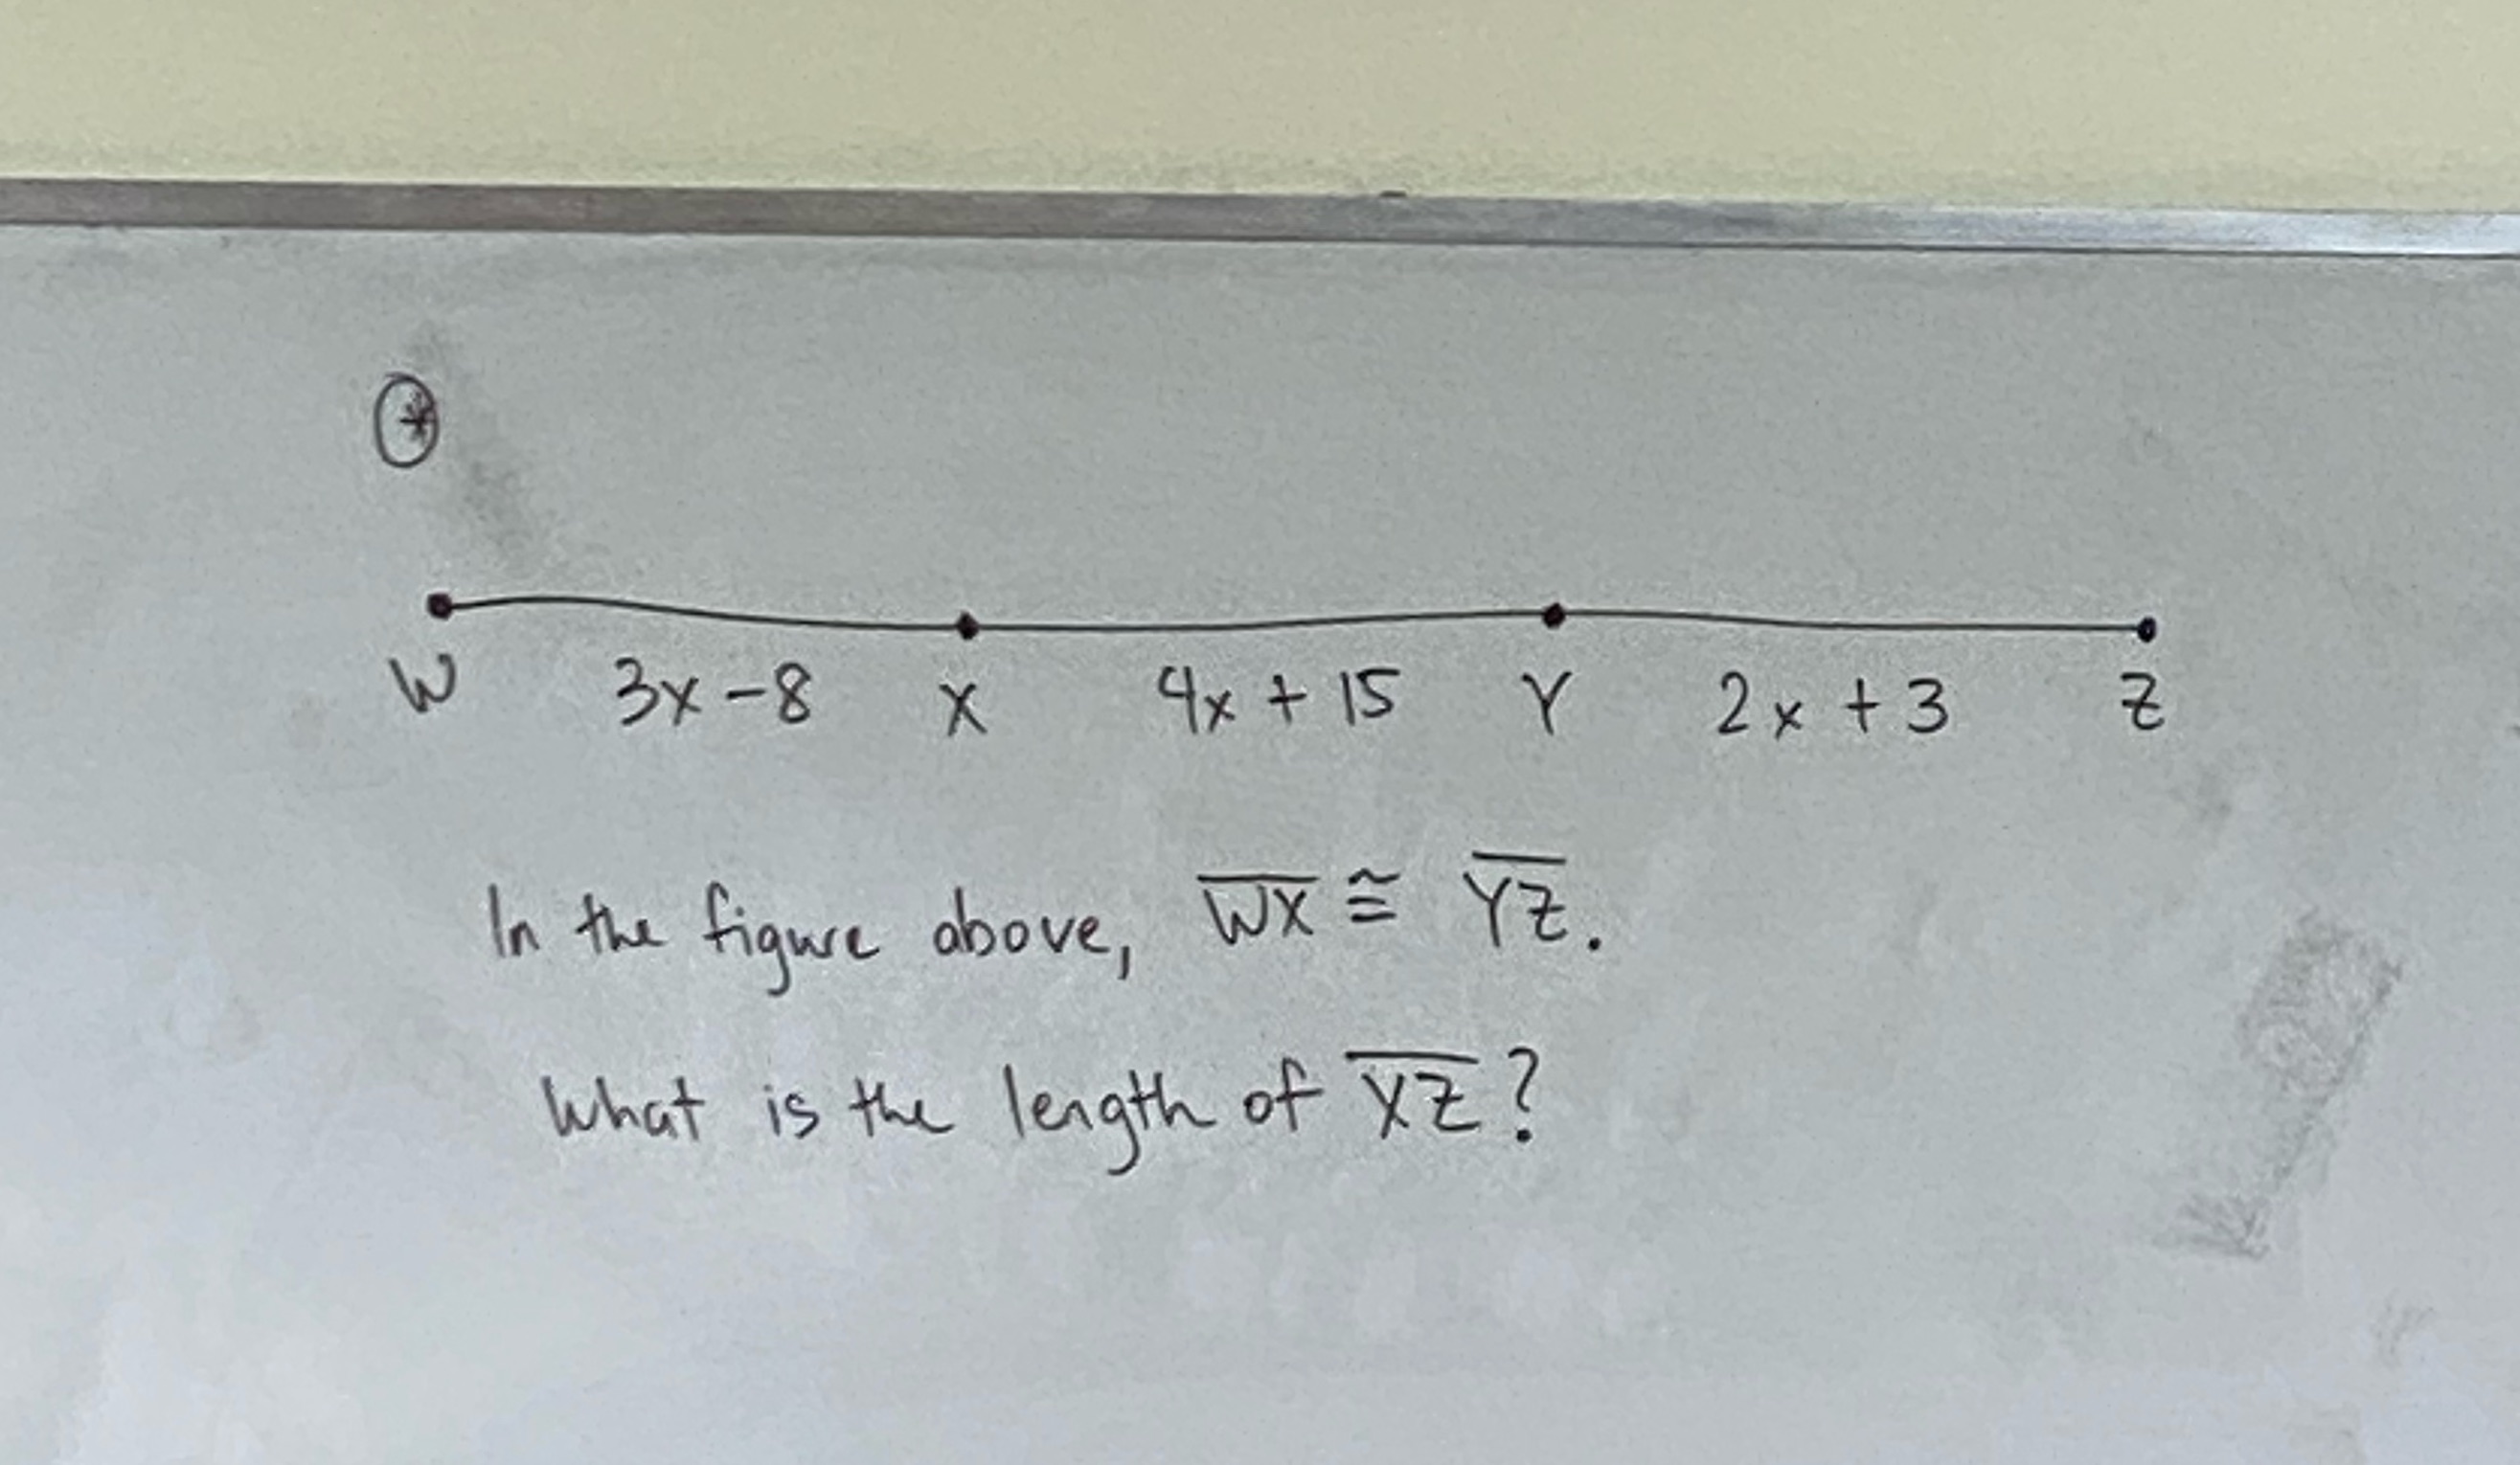 *
W 3x-8 X 4x + 15 Y 2x + 3 Z
In the figure above, W̅X̅ ≅ Y̅Z̅.
What is the length of X̅Z̅?